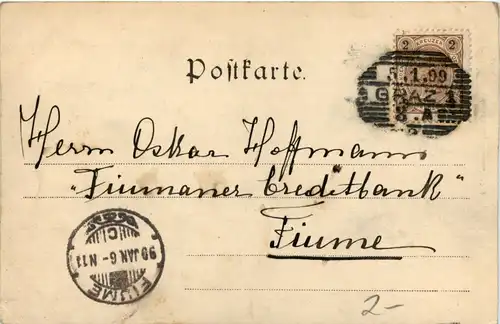 Postkarte.
2 KREUZER 2
5.1.99
GRAZ 1
8.A
Herrn Oskar Hoffmann
"Fiumaner Creditbank"
Fiume
FIUME
99 JAN. 6 - N 11
C
2-